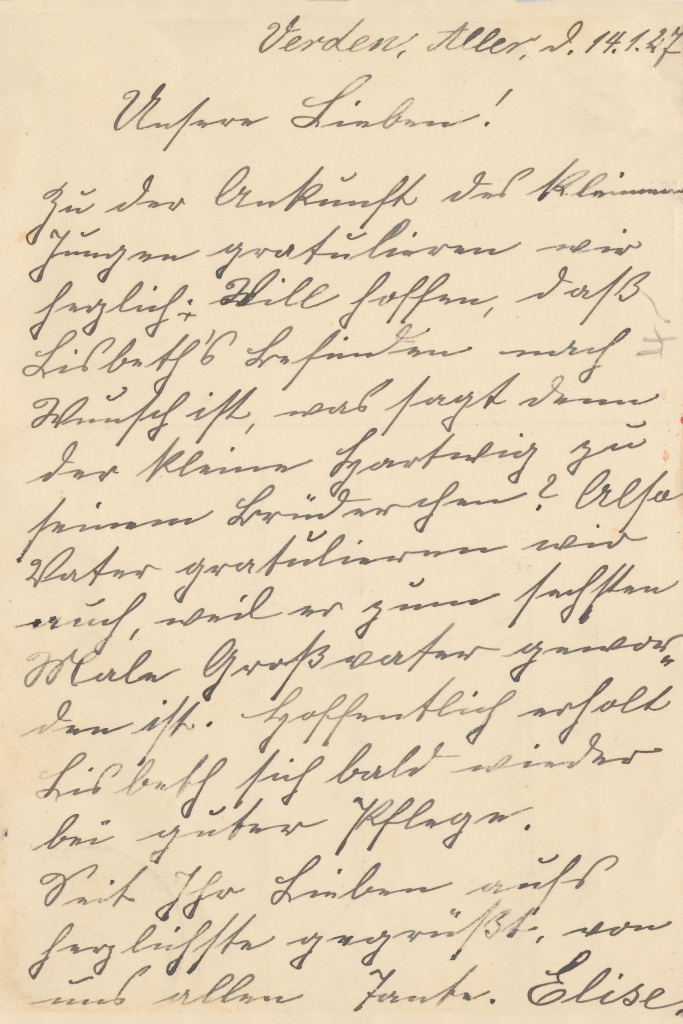 Verden, Aller, d. 14.1.27
Unsere Lieben!
Zu der Ankunft des kleinen
Jungen gratulieren wir
herzlich; Will hoffen, daß
Lisbeth's Befinden nach
Wunsch ist, was sagt denn
der kleine Hartwig zu
seinem Brüderchen? Also
Vater gratulieren wir
auch, weil er zum sechsten
Male Großvater gewor-
den ist. Hoffentlich erholt
Lisbeth sich bald wieder
bei guter Pflege.
Seit Ihr Lieben aufs
herzlichste gegrüßt, von
uns allen Tante. Elise.